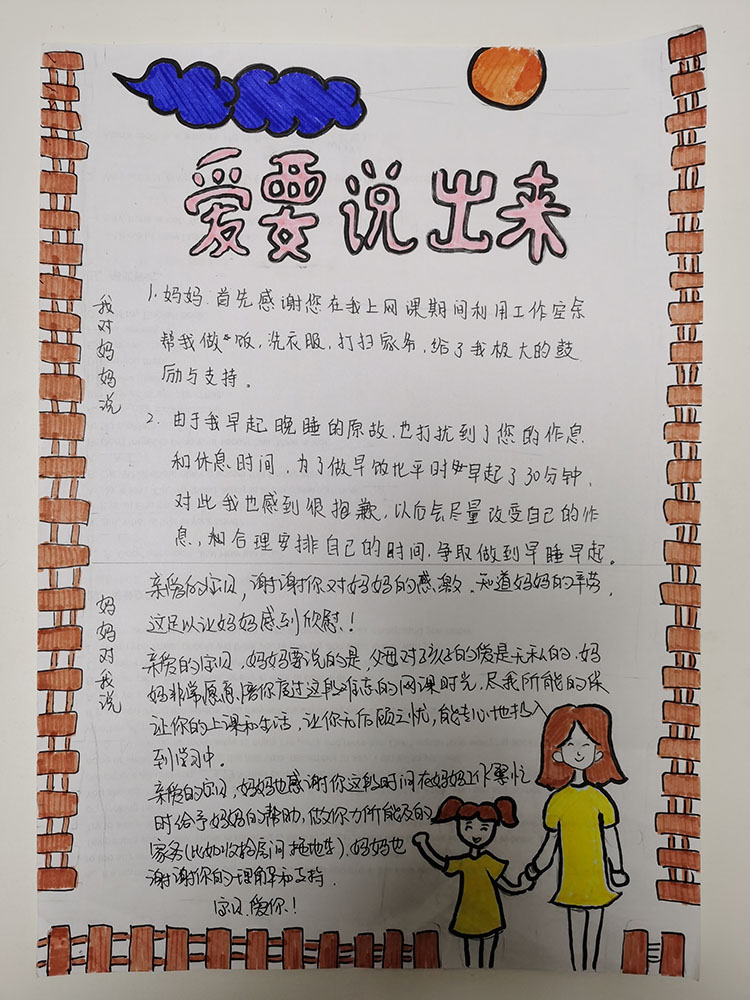 爱要说出来
我对妈妈说
1. 妈妈.首先感谢您在我上网课期间利用工作空余
帮我做饭,洗衣服,打扫家务,给了我极大的鼓
励与支持。
2. 由于我早起晚睡的原故,也打扰到了您的作息
和休息时间,为了做早饭比平时早起了30分钟,
对此我也感到很抱歉,以后会尽量改变自己的作
息,和合理安排自己的时间.争取做到早睡早起。
妈妈对我说
亲爱的宝贝,谢谢你对妈妈的感激.知道妈妈的辛劳,
这足以让妈妈感到欣慰!
亲爱的宝贝,妈妈要说的是,父母对孩子的爱是无私的.妈
妈非常愿意陪你度过这段难忘的网课时光,尽我所能的保
让你的上课和生活,让你无后顾之忧,能专心地投入
到学习中.
亲爱的宝贝,妈妈也感谢你这段时间在妈妈工作繁忙
时给予妈妈的帮助,做你力所能及的
家务(比如收拾房间 拖地等).妈妈也
谢谢你的理解和支持.
宝贝.爱你!